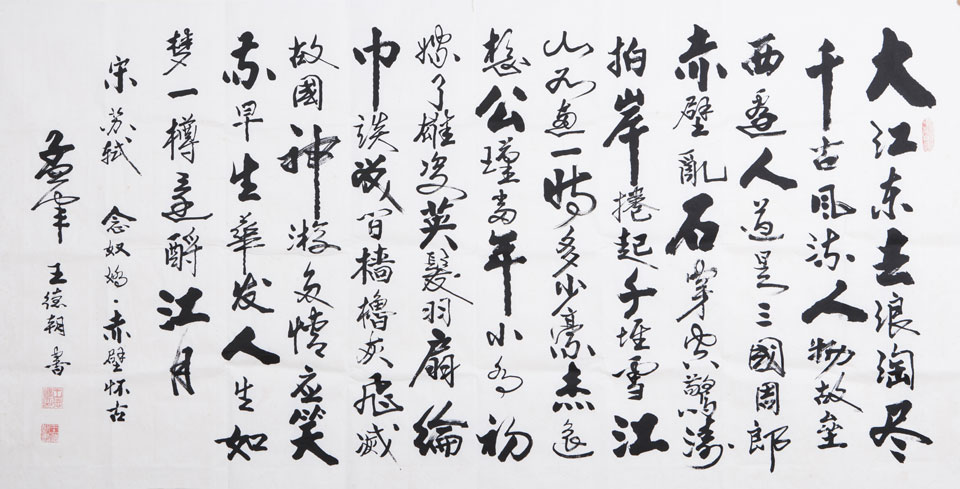 大江东去浪淘尽
千古风流人物故垒
西边人道是三國周郎
赤壁亂石穿空驚濤
拍岸捲起千堆雪江
山如画一時多少豪杰遥
想公瑾當年小乔初
嫁了雄姿英髮羽扇綸
巾谈笑间檣櫓灰飞滅
故國神游多情应笑
我早生華发人生如
梦一樽还酹江月
宋 苏轼 念奴娇·赤壁怀古
王德朝書